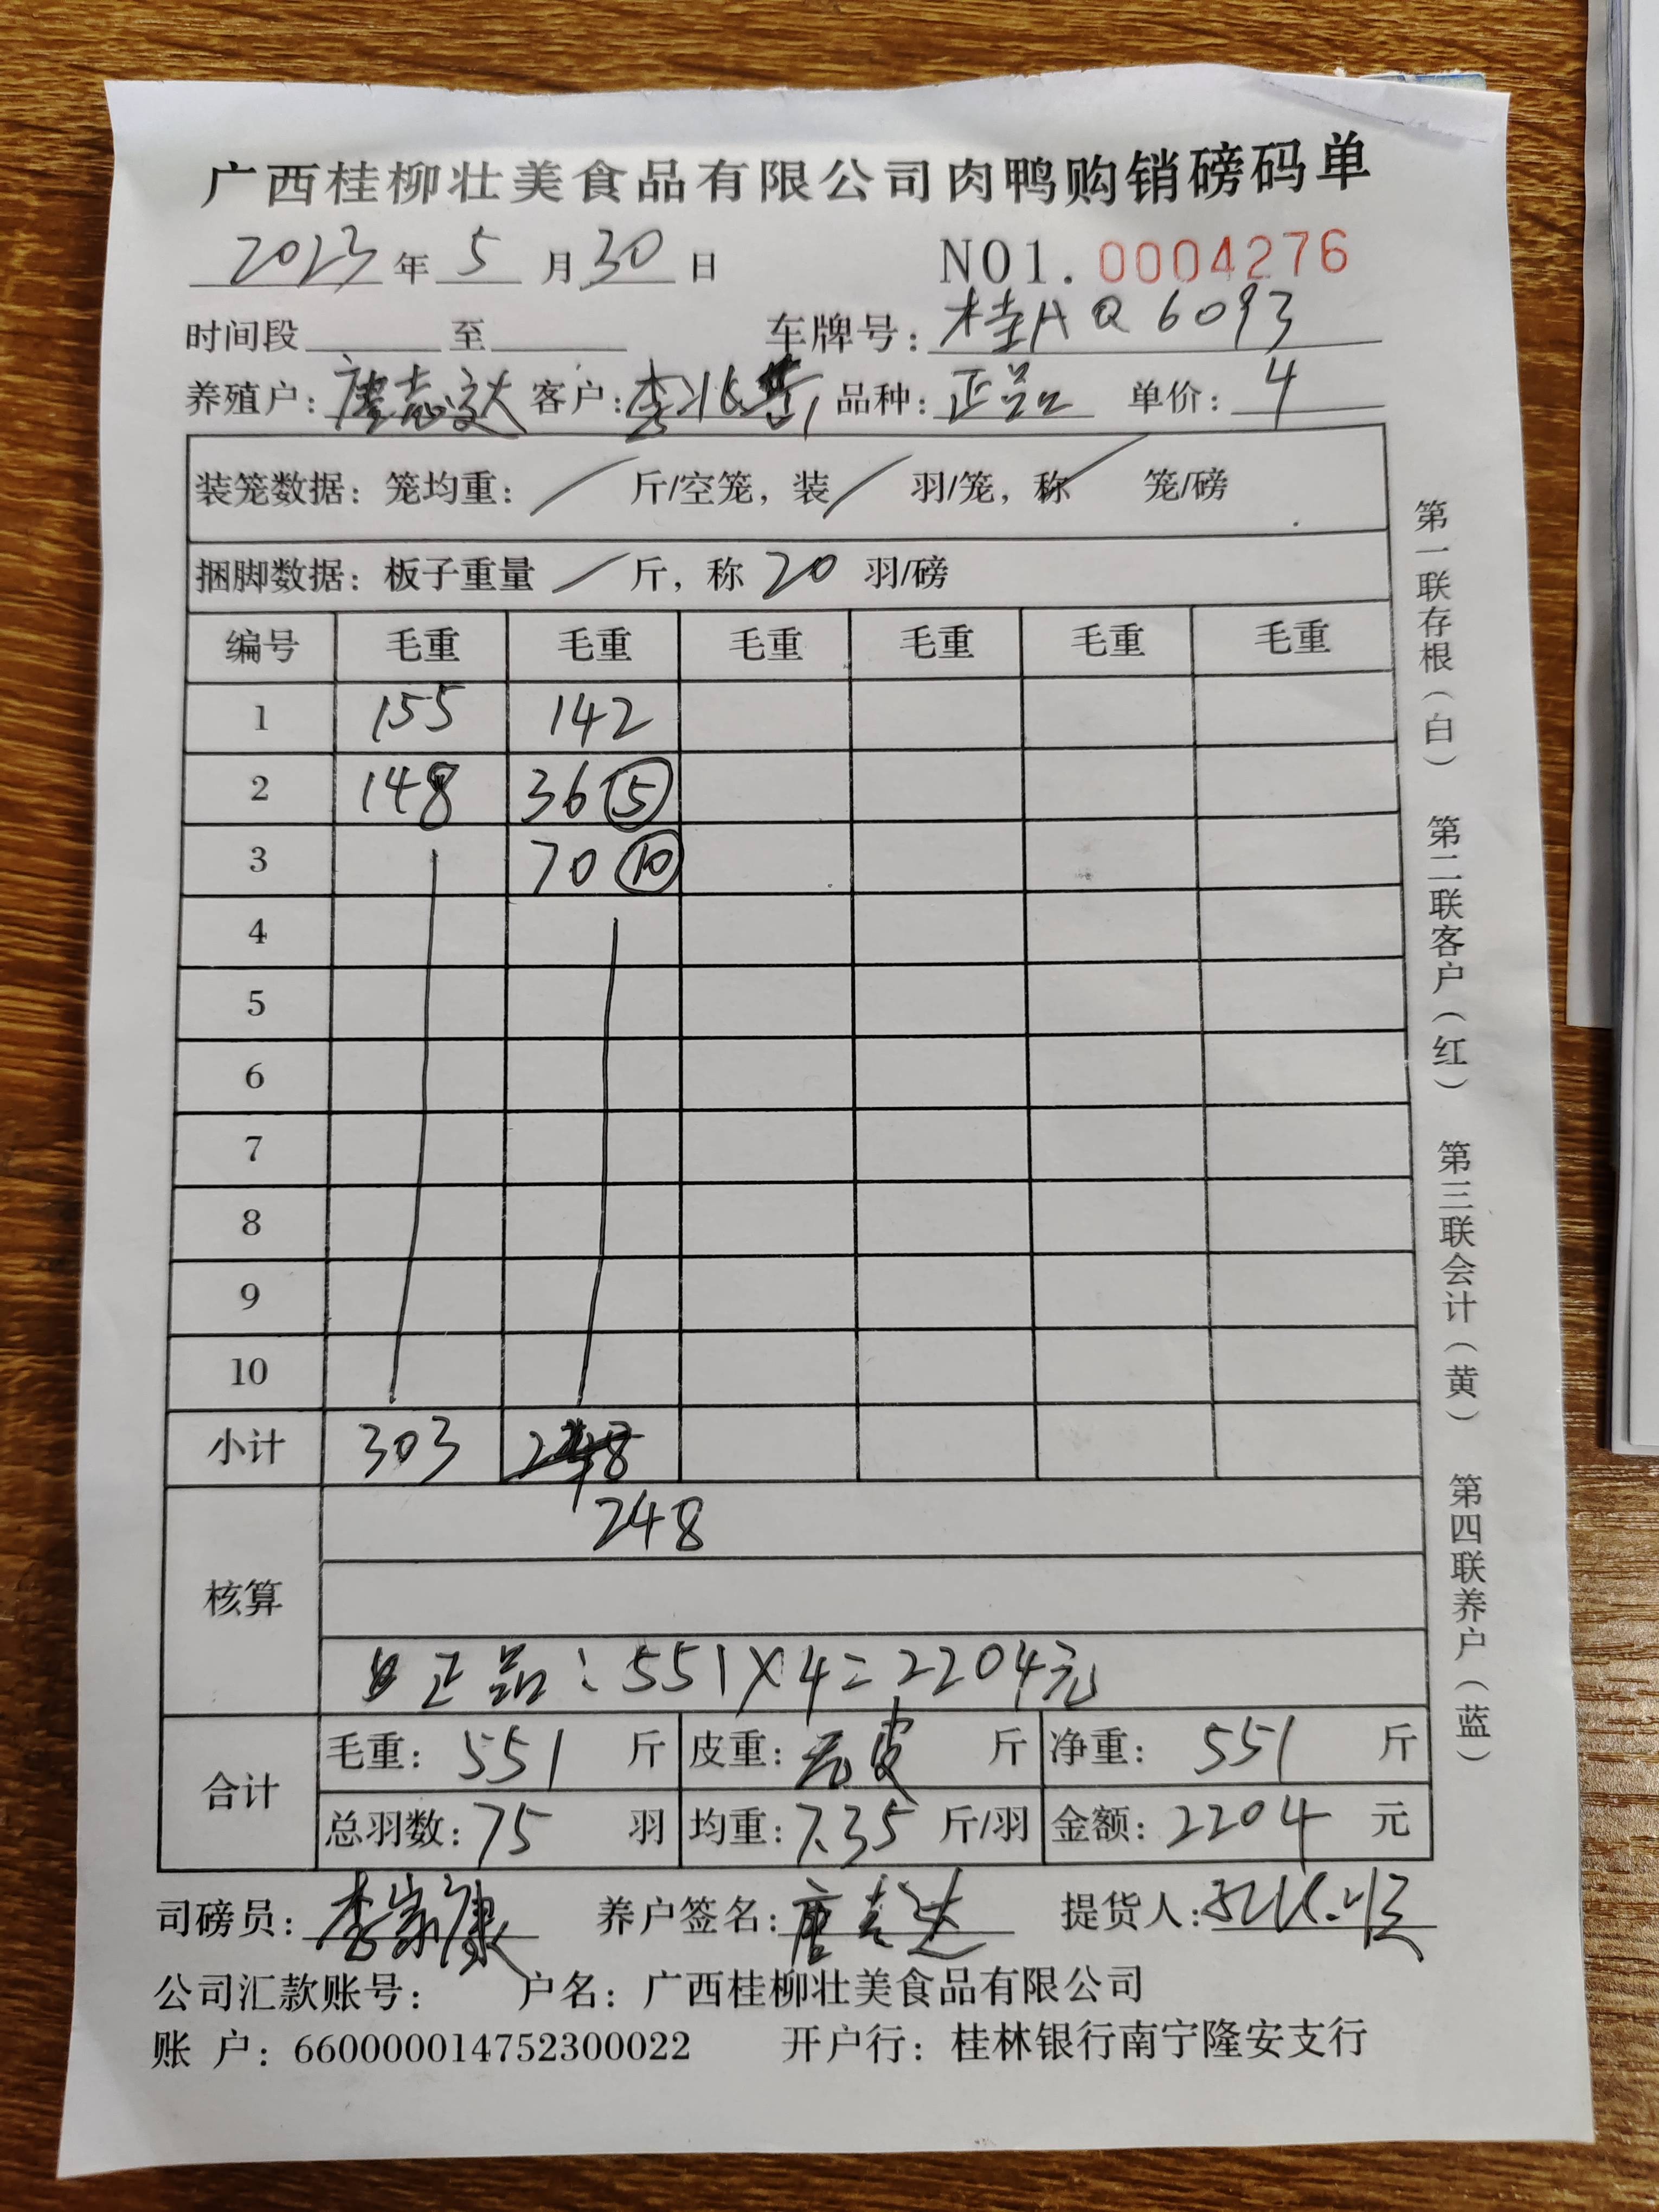 广西桂柳壮美食品有限公司肉鸭购销磅码单
2023年 5 月 30 日 NO1. 0004276
时间段 至 车牌号: 桂A Q6093
养殖户: 客户: 李 品种: 正品 单价: 4
装笼数据: 笼均重: / 斤/空笼, 装 / 羽/笼, 称 / 笼/磅
捆脚数据: 板子重量 / 斤, 称 20 羽/磅
编号 毛重 毛重 毛重 毛重 毛重 毛重
1 155 142
2 148 36 ⑤
3 70 ⑩
4
5
6
7
8
9
10
小计 303
248
核算
正品: 551×4=2204元
合计
毛重: 551 斤 皮重: 斤 净重: 551 斤
总羽数: 75 羽 均重: 7.35 斤/羽 金额: 2204 元
司磅员: 李家康 养户签名: 提货人:
公司汇款账号: 户名: 广西桂柳壮美食品有限公司
账 户: 660000014752300022 开户行: 桂林银行南宁隆安支行
第一联存根(白) 第二联客户(红) 第三联会计(黄) 第四联养户(蓝)